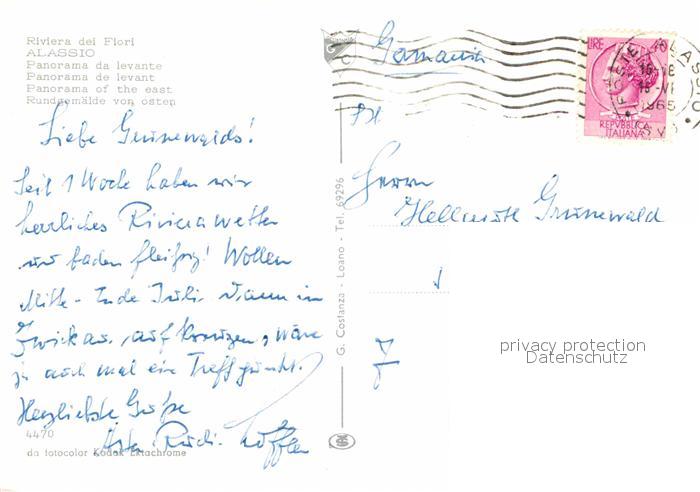 Riviera dei Fiori
ALASSIO
Panorama da levante
Panorama de levant
Panorama of the east
Rundgemälde von osten
Liebe Grünewalds!
Seit 1 Woche haben wir
herrliches Rivierawetter
und baden fleißig! Wollen
Mitte - Ende Juli dann in
Zwickau, wäre
ja auch mal ein Treffpunkt.
Herzlichste Grüße
Rudi
4470
da fotocolor Kodak Ektachrome
G. Costanza - Loano - Tel. 69296
Germania
LIRE
1965
REPVBBLICA
ITALIANA
Herrn
Hellmuth Grünewald
privacy protection
Datenschutz